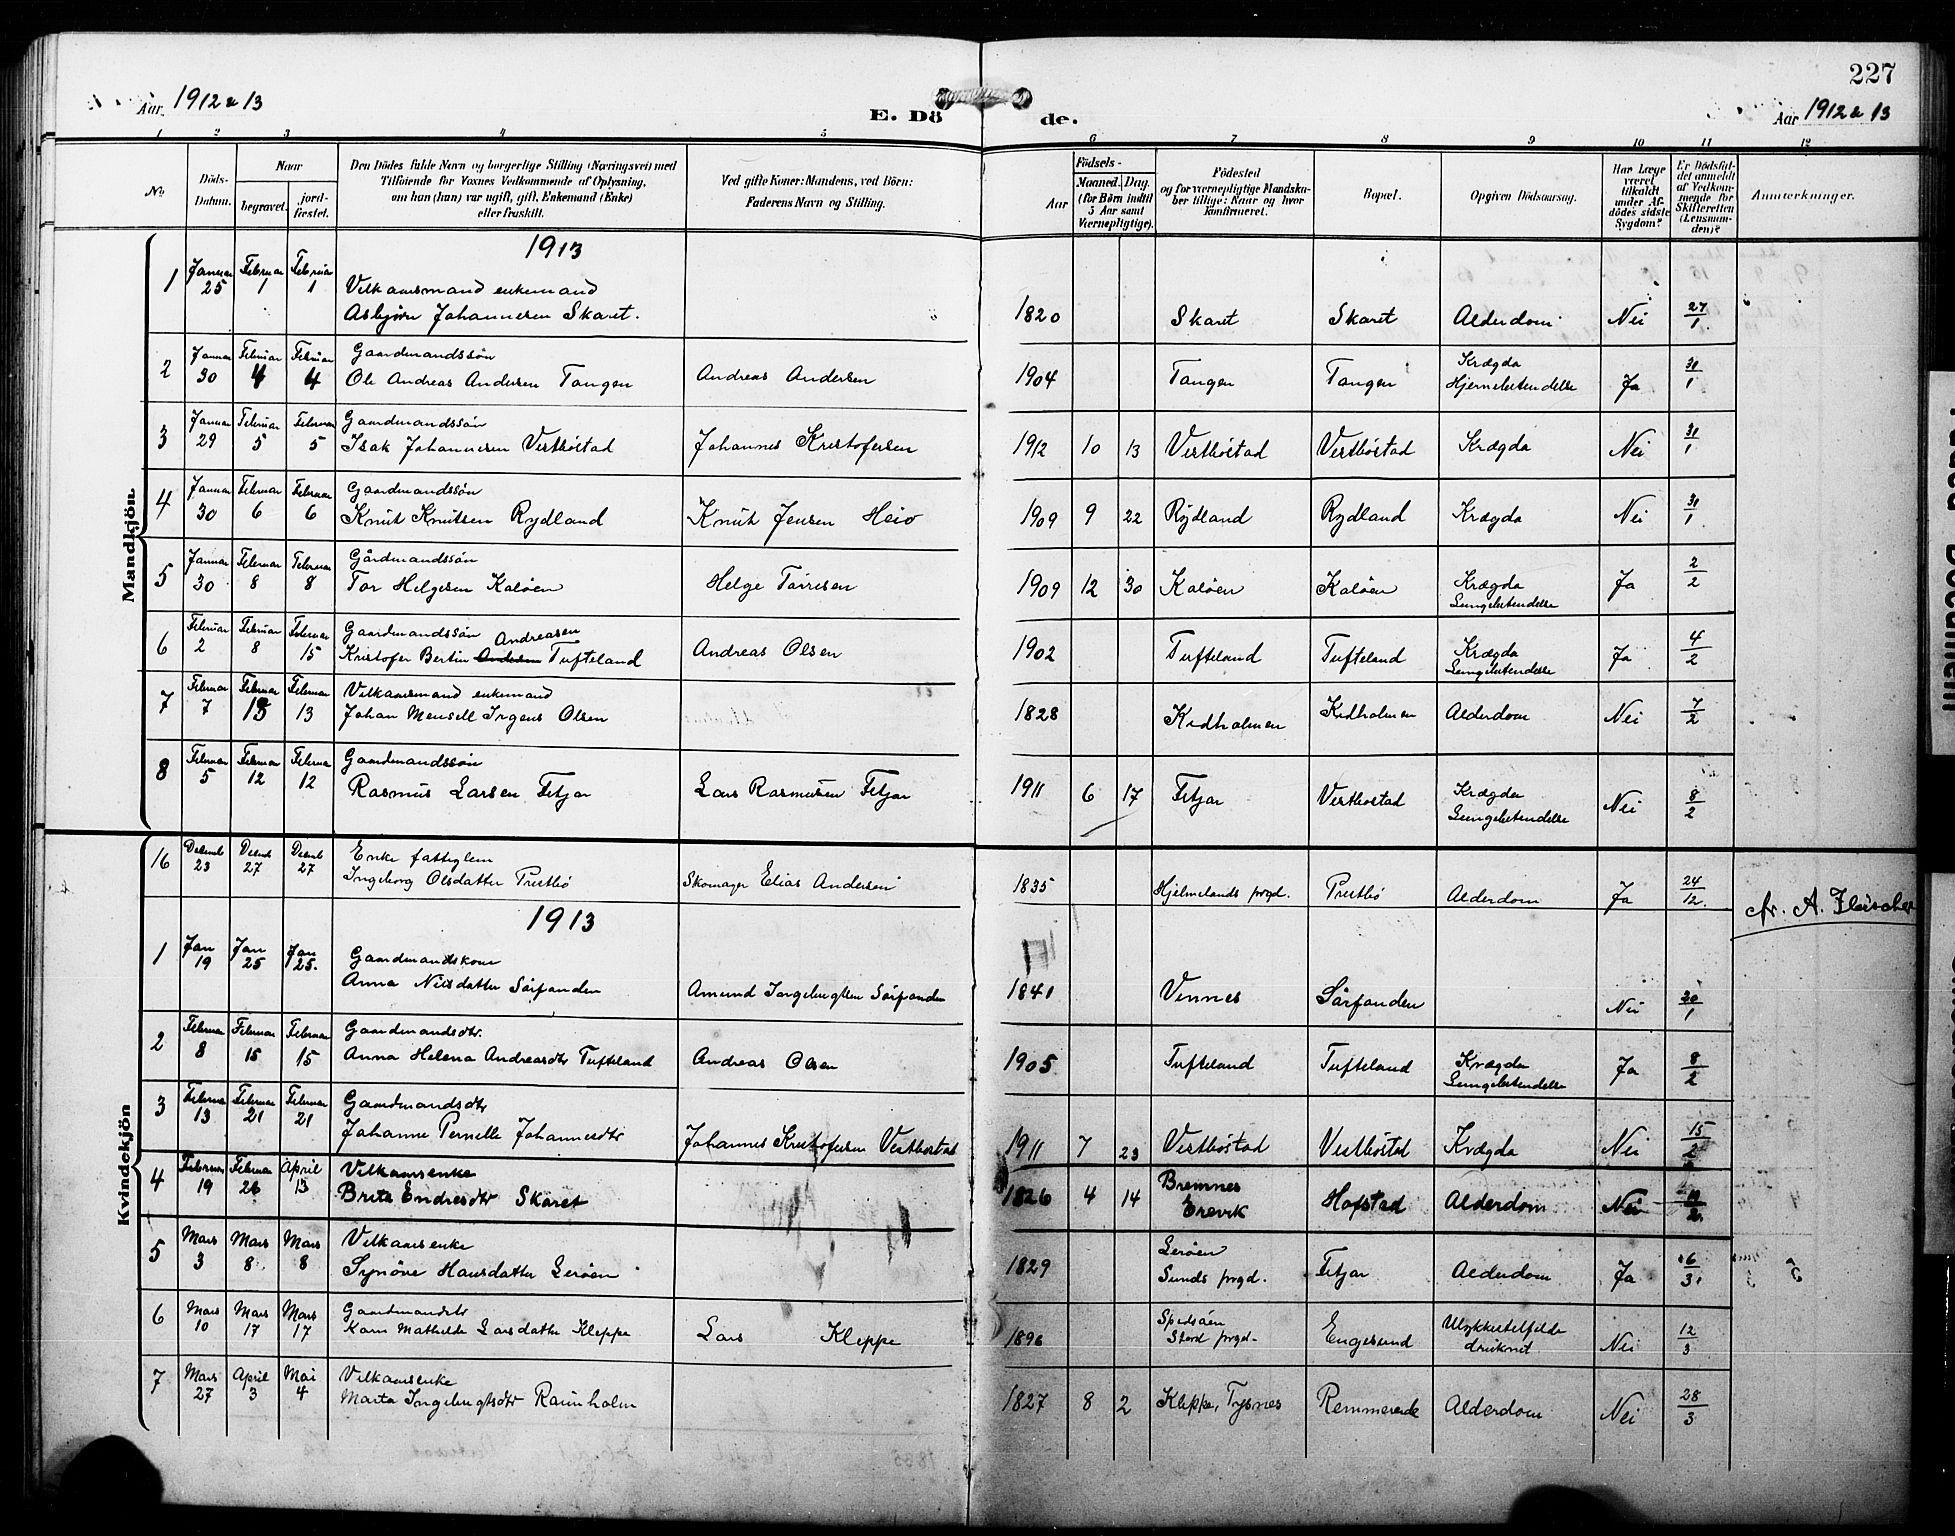 227
Aar 1912 & 13
E. Dö de.
Aar 1912 & 13
1 2 3 4 5 6 7 8 9 10 11 12
No.
Döds-Datum.
Naar
begravet.
jord-fæstet.
Den Dödes fulde Navn og borgerlige Stilling (Næringsvei) med
Tilföiende for Voxnes Vedkommende af Oplysning,
om han (hun) var ugift, gift, Enkemand (Enke)
eller fraskilt.
Ved gifte Koner: Mandens, ved Börn:
Faderens Navn og Stilling.
Födsels-
Aar
Maaned. Dag.
(for Börn indtil
5 Aar samt
Værnepligtige).
Födested
og for værnepligtige Mandska-
ber tillige: Naar og hvor
konfirmeret.
Bopæl.
Opgiven Dödsaarsag.
Har Læge
været
tilkaldt
under Af-
dödes sidste
Sygdom?
Er Dödsfal-
det anmeldt
af Vedkom-
mende for
Skifteretten
(Lensman-
den)?
Anmærkninger.
Mandkjön.
1913
1 Januar 25 Februar 1 Februar 1 Vilkaarsmand enkemand
Asbjørn Johannesen Skaret. 1820 Skaret Skaret Alderdom Nei 27/1
2 Januar 30 Februar 4 Februar 4 Gaardmandssøn
Ole Andreas Andersen Tangen Andreas Andersen 1904 Tangen Tangen Krægda Hjernebetendelse Ja 31/1
3 Januar 29 Februar 5 Februar 5 Gaardmandssøn
Isak Johannesen Vestbøstad Johannes Kristofersen 1912 10 13 Vestbøstad Vestbøstad Krægda Nei 31/1
4 Januar 30 Februar 6 Februar 6 Gaardmandssøn
Knut Knutsen Rydland Knut Jensen Heio 1909 9 22 Rydland Rydland Krægda Nei 31/1
5 Januar 30 Februar 8 Februar 8 Gårdmandssøn
Tor Helgesen Kaløen Helge Torresen 1909 12 30 Kaløen Kaløen Krægda Lungebetendelse Ja 2/2
6 Februar 2 Februar 8 Februar 15 Gaardmandssøn Andreasen
Kristofer Bertin Andersen Tufteland Andreas Olsen 1902 Tufteland Tufteland Krægda Lungebetendelse Ja 4/2
7 Februar 7 Februar 13 Februar 13 Vilkaarsmand enkemand
Johan Mensell Irgens Olsen 1828 Kidholmen Kidholmen Alderdom Nei 7/2
8 Februar 5 Februar 12 Februar 12 Gaardmandssøn
Rasmus Larsen Fitjar Lars Rasmusen Fitjar 1911 6 17 Fitjar Vestbostad Krægda Lungebetendelse Nei 8/2
Kvindekjön.
16 Decemb 23 Decemb 27 Decemb 27 Enke fattiglem
Ingeborg Olsdatter Prestbø Skomager Elias Andersen 1835 Hjelmelands prgd. Prestbø Alderdom Ja 24/12. A. Fleischer
1913
1 Jan 19 Jan 25 Jan 25. Gaardmandskone
Anna Nilsdatter Sørfonden Amund Ingebrigtsen Sørfonden 1841 Vinnes Sørfonden Nei 30/1
2 Februar 8 Februar 15 Februar 15 Gaardmandsdtr.
Anna Helena Andreasdtr Tufteland Andreas Olsen 1905 Tufteland Tufteland Krægda Lungebetendelse Ja 8/2
3 Februar 13 Februar 21 Februar 21 Gaardmandsdtr
Johanne Pernelle Johannesdtr Johannes Kristofersen Vestbostad 1911 7 23 Vestbøstad Vestbøstad Krægda Nei 15/2
4 Februar 19 Februar 26 April 13 Vilkaarsenke
Brita Endresdtr Skaret 1826 4 14 Bremnes Erevik Hofstad Alderdom Nei
5 Mars 3 Mars 8 Mars 8 Vilkaarsenke
Synøve Hansdatter Lerøen 1829 Lerøen Sunds prgd. Fitjar Alderdom Ja 6/3
6 Mars 10 Mars 17 Mars 17 Gaardmandsdtr
Karn Mathilde Larsdatter Kleppe Lars Kleppe 1896 Stord prgd. Engesund Ulykkestilfælde druknet Nei 12/3
7 Mars 27 April 3 Mai 4 Vilkaarsenke
Marta Ingebrigtsdtr Raunholm 1827 8 2 Kleppe, Tysnes Remmereide Alderdom Nei 28/3